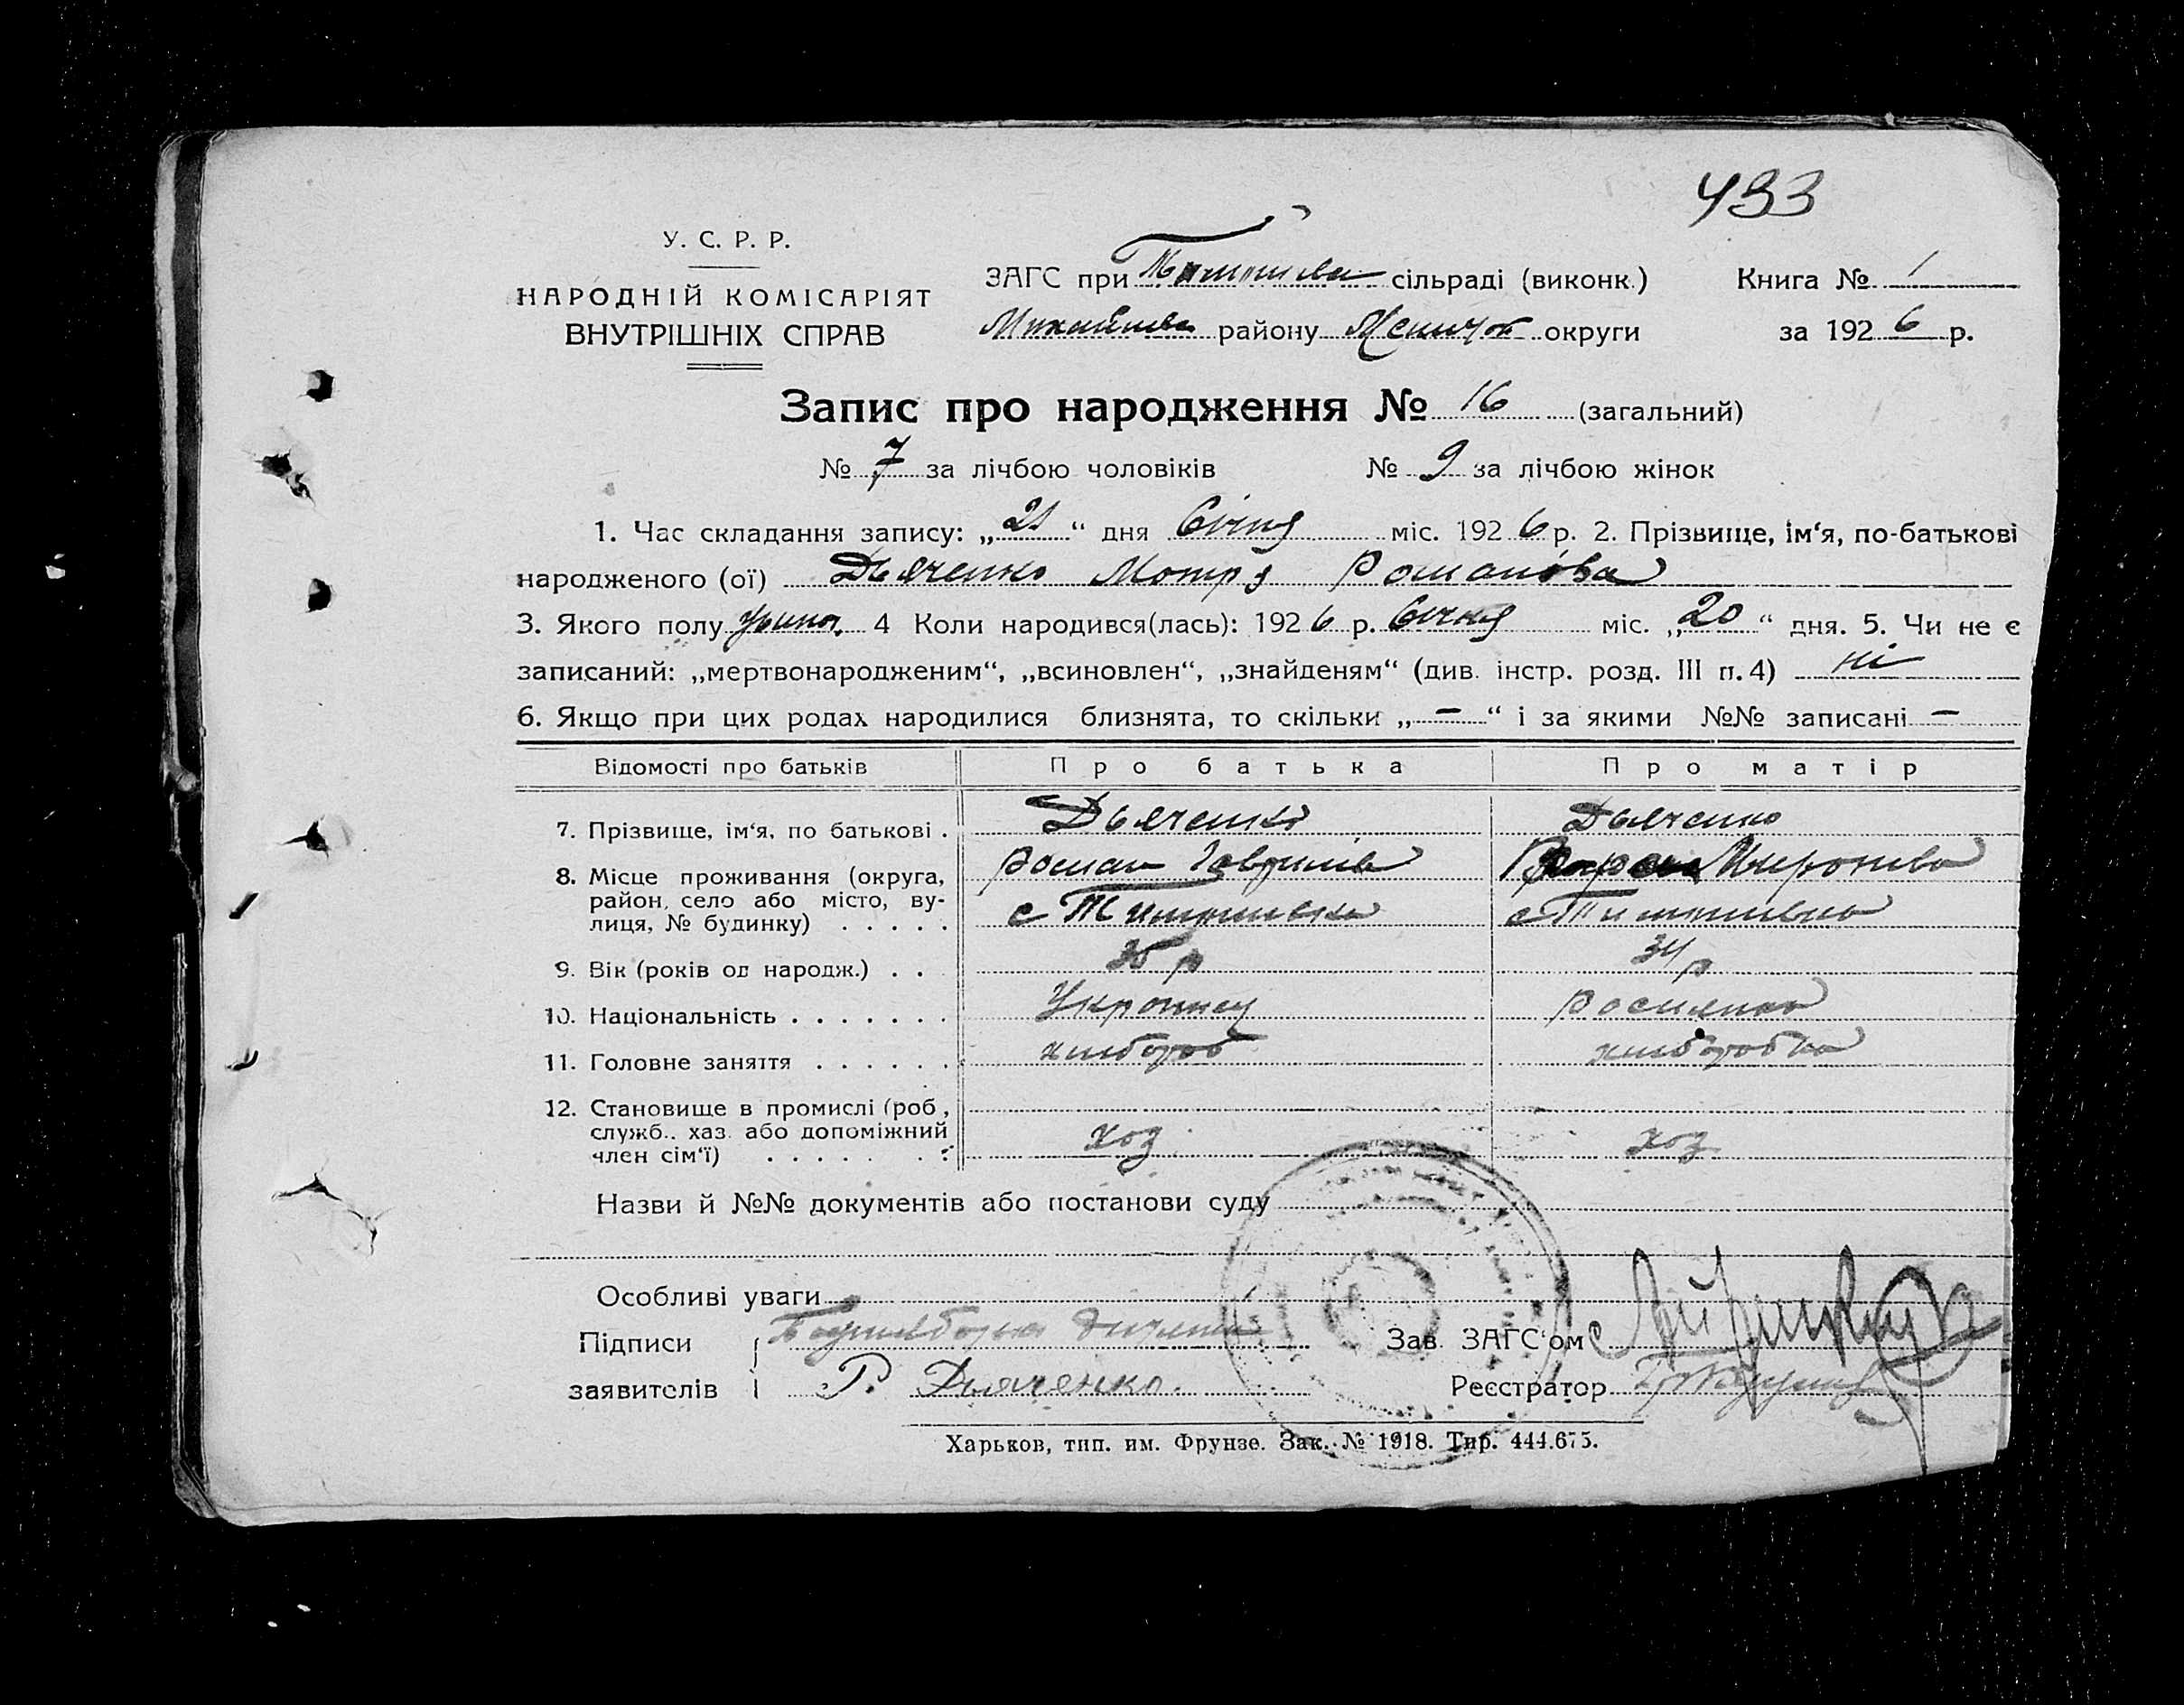 433
У. С. Р. Р.
НАРОДНІЙ КОМІСАРІЯТ
ВНУТРІШНІХ СПРАВ
ЗАГС при сільраді (виконк.)
району округи
Книга № 1
за 1926 р.
Запис про народження № 16 (загальний)
№ 7 за лічбою чоловіків № 9 за лічбою жінок
1. Час складання запису: „21“ дня Січня міс. 1926 р. 2. Прізвище, ім‘я, по-батькові
народженого (ої) Дьяченко Мотря Романова
3. Якого полу жиноч. 4 Коли народився(лась): 1926 р. Січня міс. „20“ дня. 5. Чи не є
записаний: „мертвонародженим“, „всиновлен“, „знайденям“ (див. інстр. розд. III п. 4) ні
6. Якщо при цих родах народилися близнята, то скільки „—“ і за якими №№ записані —
Відомості про батьків Про батька Про матір
7. Прізвище, ім‘я, по батькові . Дьяченко Дьяченко
Роман Гаврилів Миронива
8. Місце проживання (округа,
район, село або місто, ву-
лиця, № будинку) . . . . . с Тимошивка с Тимошивка
9. Вік (років од народж.) . . 35 р 34 р
10. Національність . . . . . . . Украинец Росиянка
11. Головне заняття . . . . . . хлибороб хлиборобка
12. Становище в промислі (роб,
служб.. хаз. або допоміжний
член сім‘ї) . . . . . . . хоз хоз
Назви й №№ документів або постанови суду
Особливі уваги
Підписи
заявителів Р. Дьяченко.
Зав. ЗАГС‘ом
Реєстратор
Харьков, тип. им. Фрунзе. Зак. № 1918. Тир. 444.675.